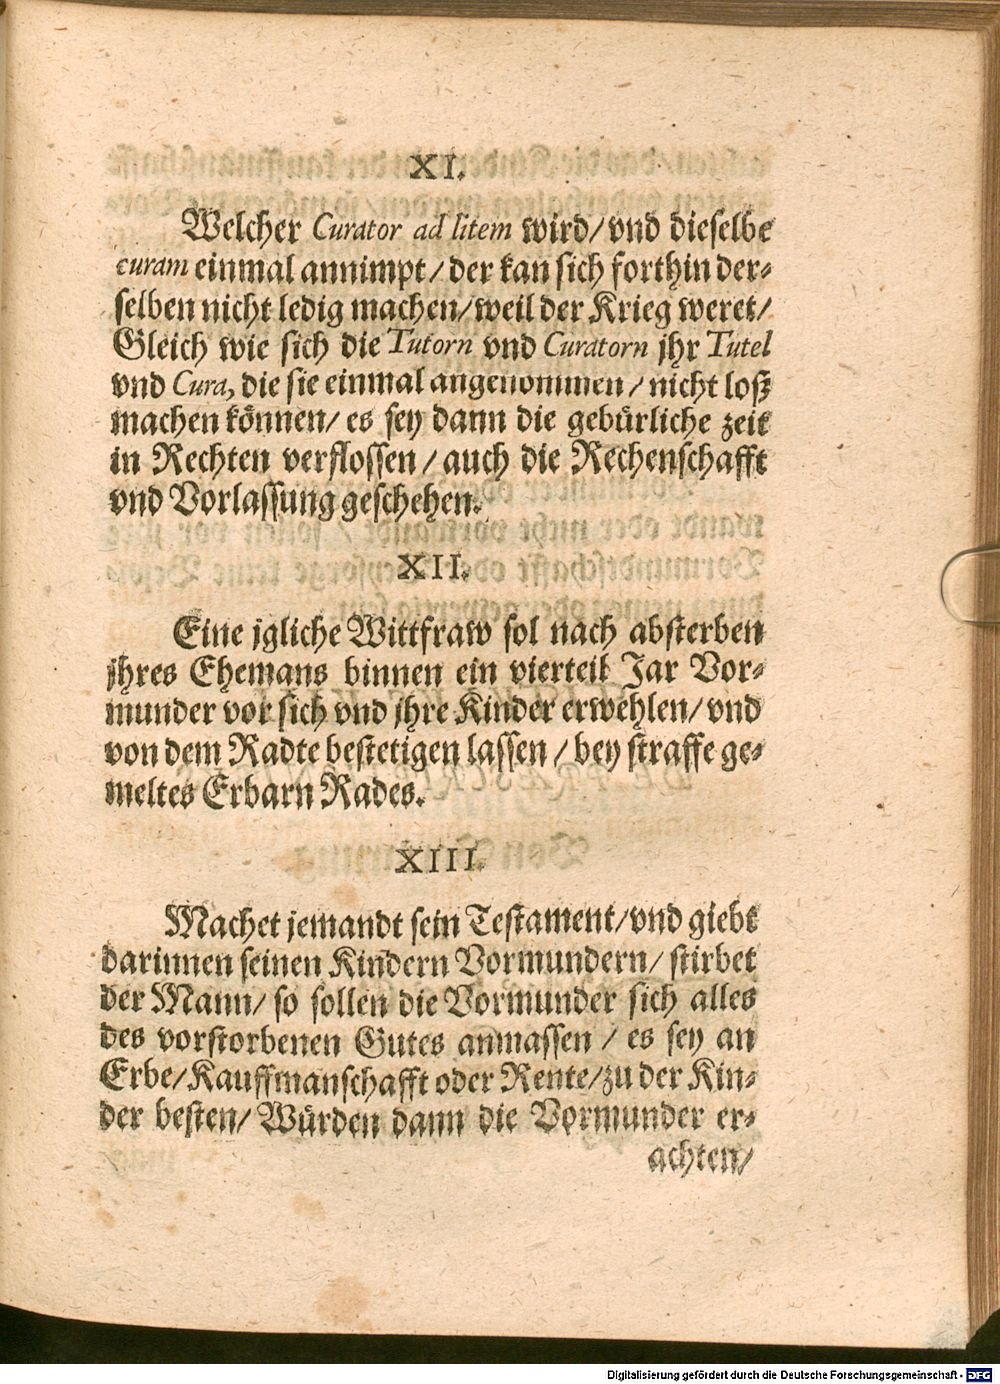 XI.
Welcher Curator ad litem wird/ vnd dieselbe
curam einmal annimpt/ der kan sich forthin der-
selben nicht ledig machen/ weil der Krieg weret/
Gleich wie sich die Tutorn vnd Curatorn jhr Tutel
vnd Cura, die sie einmal angenommen/ nicht loß
machen können/ es sey dann die gebürliche zeit
in Rechten verflossen/ auch die Rechenschafft
vnd Vorlassung geschehen.
XII.
Eine jgliche Wittfraw sol nach absterben
jhres Ehemans binnen ein vierteil Jar Vor-
munder vor sich vnd jhre Kinder erwehlen/ vnd
von dem Radte bestetigen lassen/ bey straffe ge-
meltes Erbarn Rades.
XIII.
Machet jemandt sein Testament/ vnd giebt
darinnen seinen Kindern Vormundern/ stirbet
der Mann/ so sollen die Vormunder sich alles
des vorstorbenen Gutes anmassen/ es sey an
Erbe/ Kauffmanschafft oder Rente/ zu der Kin-
der besten/ Würden dann die Vormunder er-
achten/
Digitalisierung gefördert durch die Deutsche Forschungsgemeinschaft - DFG